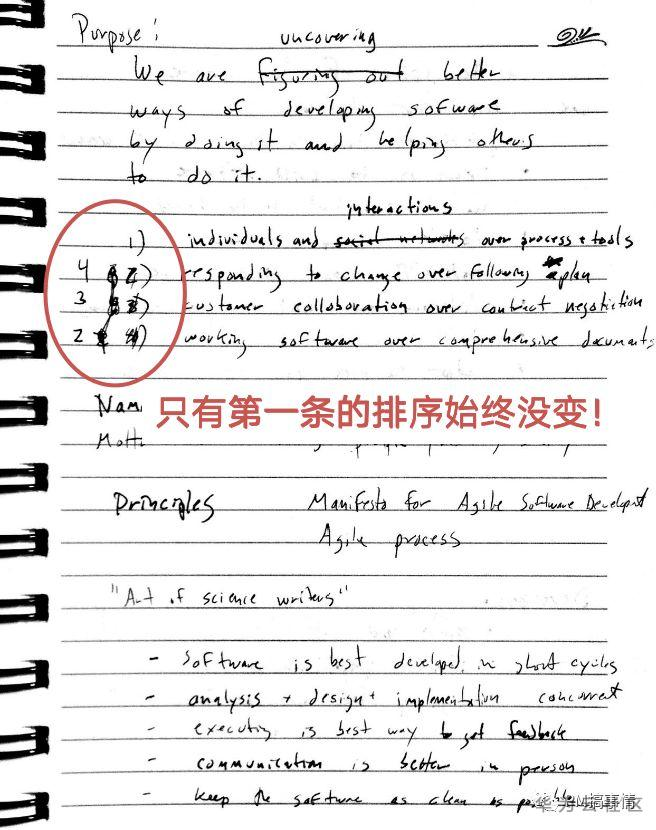 Purpose:
uncovering
We are figuring out better
ways of developing sofware
by doing it and helping others
to do it.
interactions
1) individuals and social networks over process + tools
4 2) responding to change over following a plan
3 3) customer collaboration over contract negotiation
2 4) working software over comprehensive documents
Nam
只有第一条的排序始终没变！
Mott
Principles Manifesto for Agile Software Developmt
Agile process
"Art of science writers"
- software is best developed in short cycles
- analysis + design + implementation concurrent
- executing is best way to get feedback
- communication is better in person
- keep the software as clean as possible